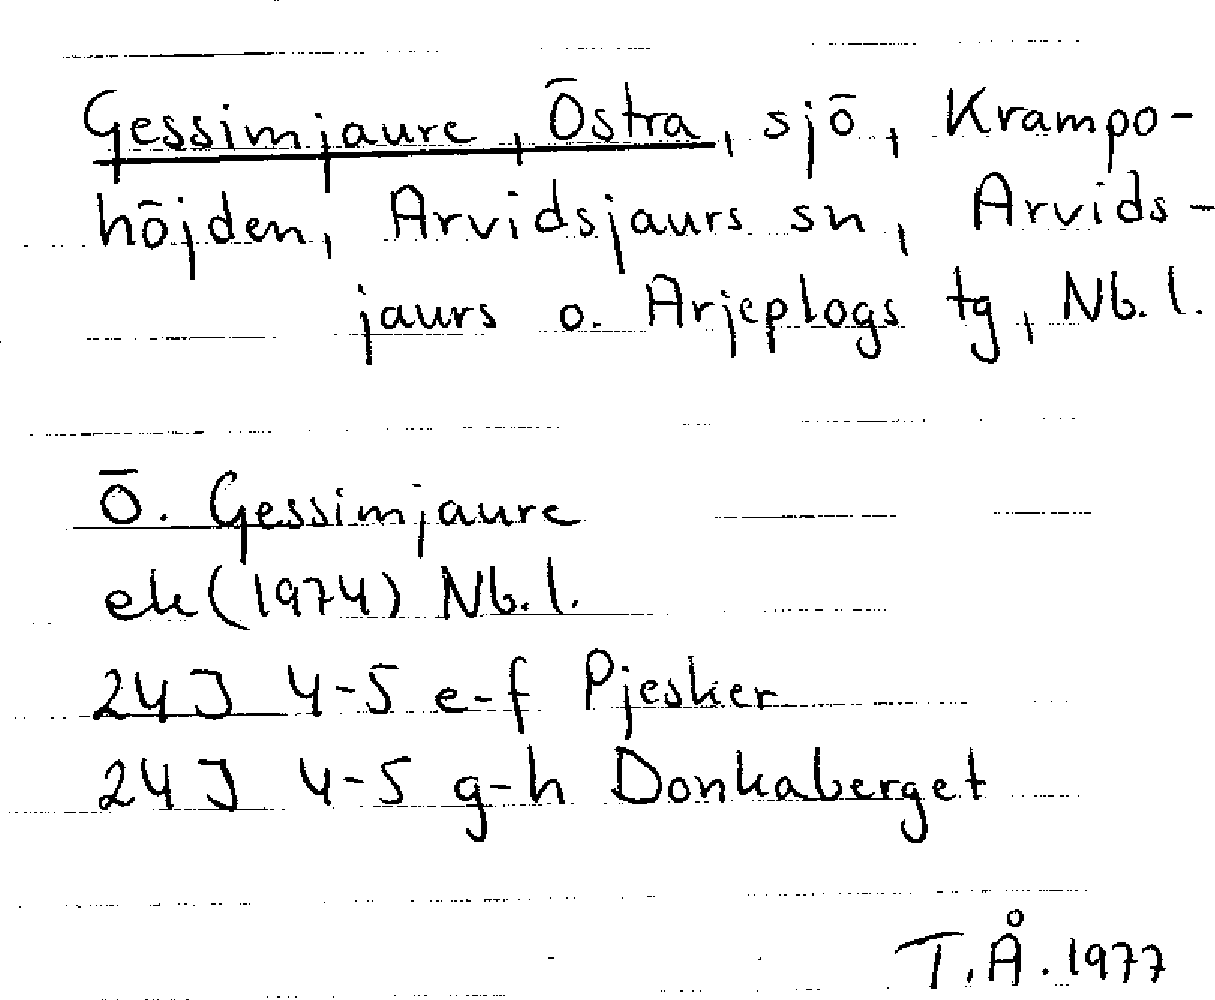 Gessimjaure, Östra, sjö, Krampo-
höjden, Arvidsjaurs sn, Arvids-
jaurs o. Arjeplogs tg, Nb. l.
Ö. Gessimjaure
ek (1974) Nb. l.
24J 4-5 e-f Pjesker
24J 4-5 g-h Donkaberget
T.Å. 1977